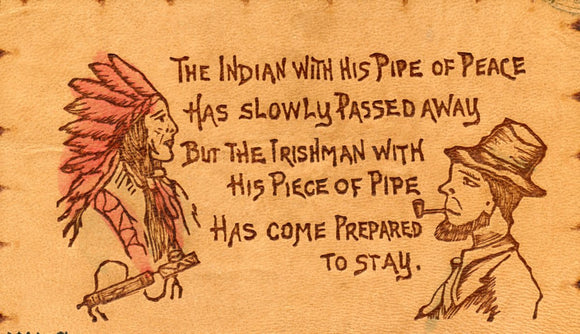 The Indian with his Pipe of Peace
Has slowly Passed away
But the Irishman with
His Piece of Pipe
Has come Prepared
to stay.